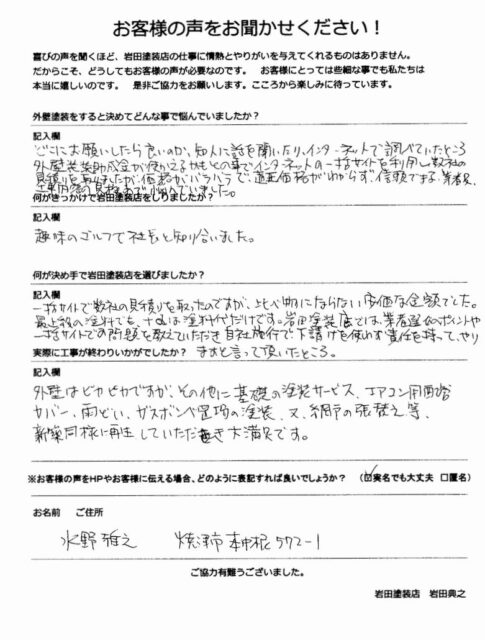 お客様の声をお聞かせください！
喜びの声を聞くほど、岩田塗装店の仕事に情熱とやりがいを与えてくれるものはありません。
だからこそ、どうしてもお客様の声が必要なのです。　お客様にとっては些細な事でも私たちは
本当に嬉しいのです。　是非ご協力をお願いします。こころから楽しみに待っています。
外壁塗装をすると決めてどんな事で悩んでいましたか？
記入欄
どこにお願いしたら良いのか、知人に話を聞いたり、インターネットで調べていたところ
外壁塗装助成金が使えるかもとの事でインターネットの一括サイトを利用し数社の
見積りを取りましたが価格がバラバラで、適正価格がわからず、信頼できる業者及
何がきっかけで岩田塗装店をしりましたか？
記入欄
趣味のゴルフで社長と知り合いました。
何が決め手で岩田塗装店を選びましたか？
記入欄
一括サイトで数社の見積りを取ったのですが、比べ物にならない安価な金額でした。
最上級の塗料でも、+αは塗料代だけです。岩田塗装店では、業者選びのポイントや
一括サイトでの問題を教えていただき自社施行で、下請けを使わず責任を持って、やり
実際に工事が終わりいかがでしたか？
ますと言って頂いたところ。
記入欄
外壁はピカピカですが、その他に基礎の塗装サービス、エアコン用
カバー、雨どい、ガスボンベ置場の塗装、又、網戸の張替え等、
新築同様に再生していただき大満足です。
※お客様の声をHPやお客様に伝える場合、どのように表記すれば良いでしょうか？　（☑実名でも大丈夫　□匿名）
お名前　ご住所
水野雅之　焼津市本中根572-1
ご協力有難うございました。
岩田塗装店　岩田典之